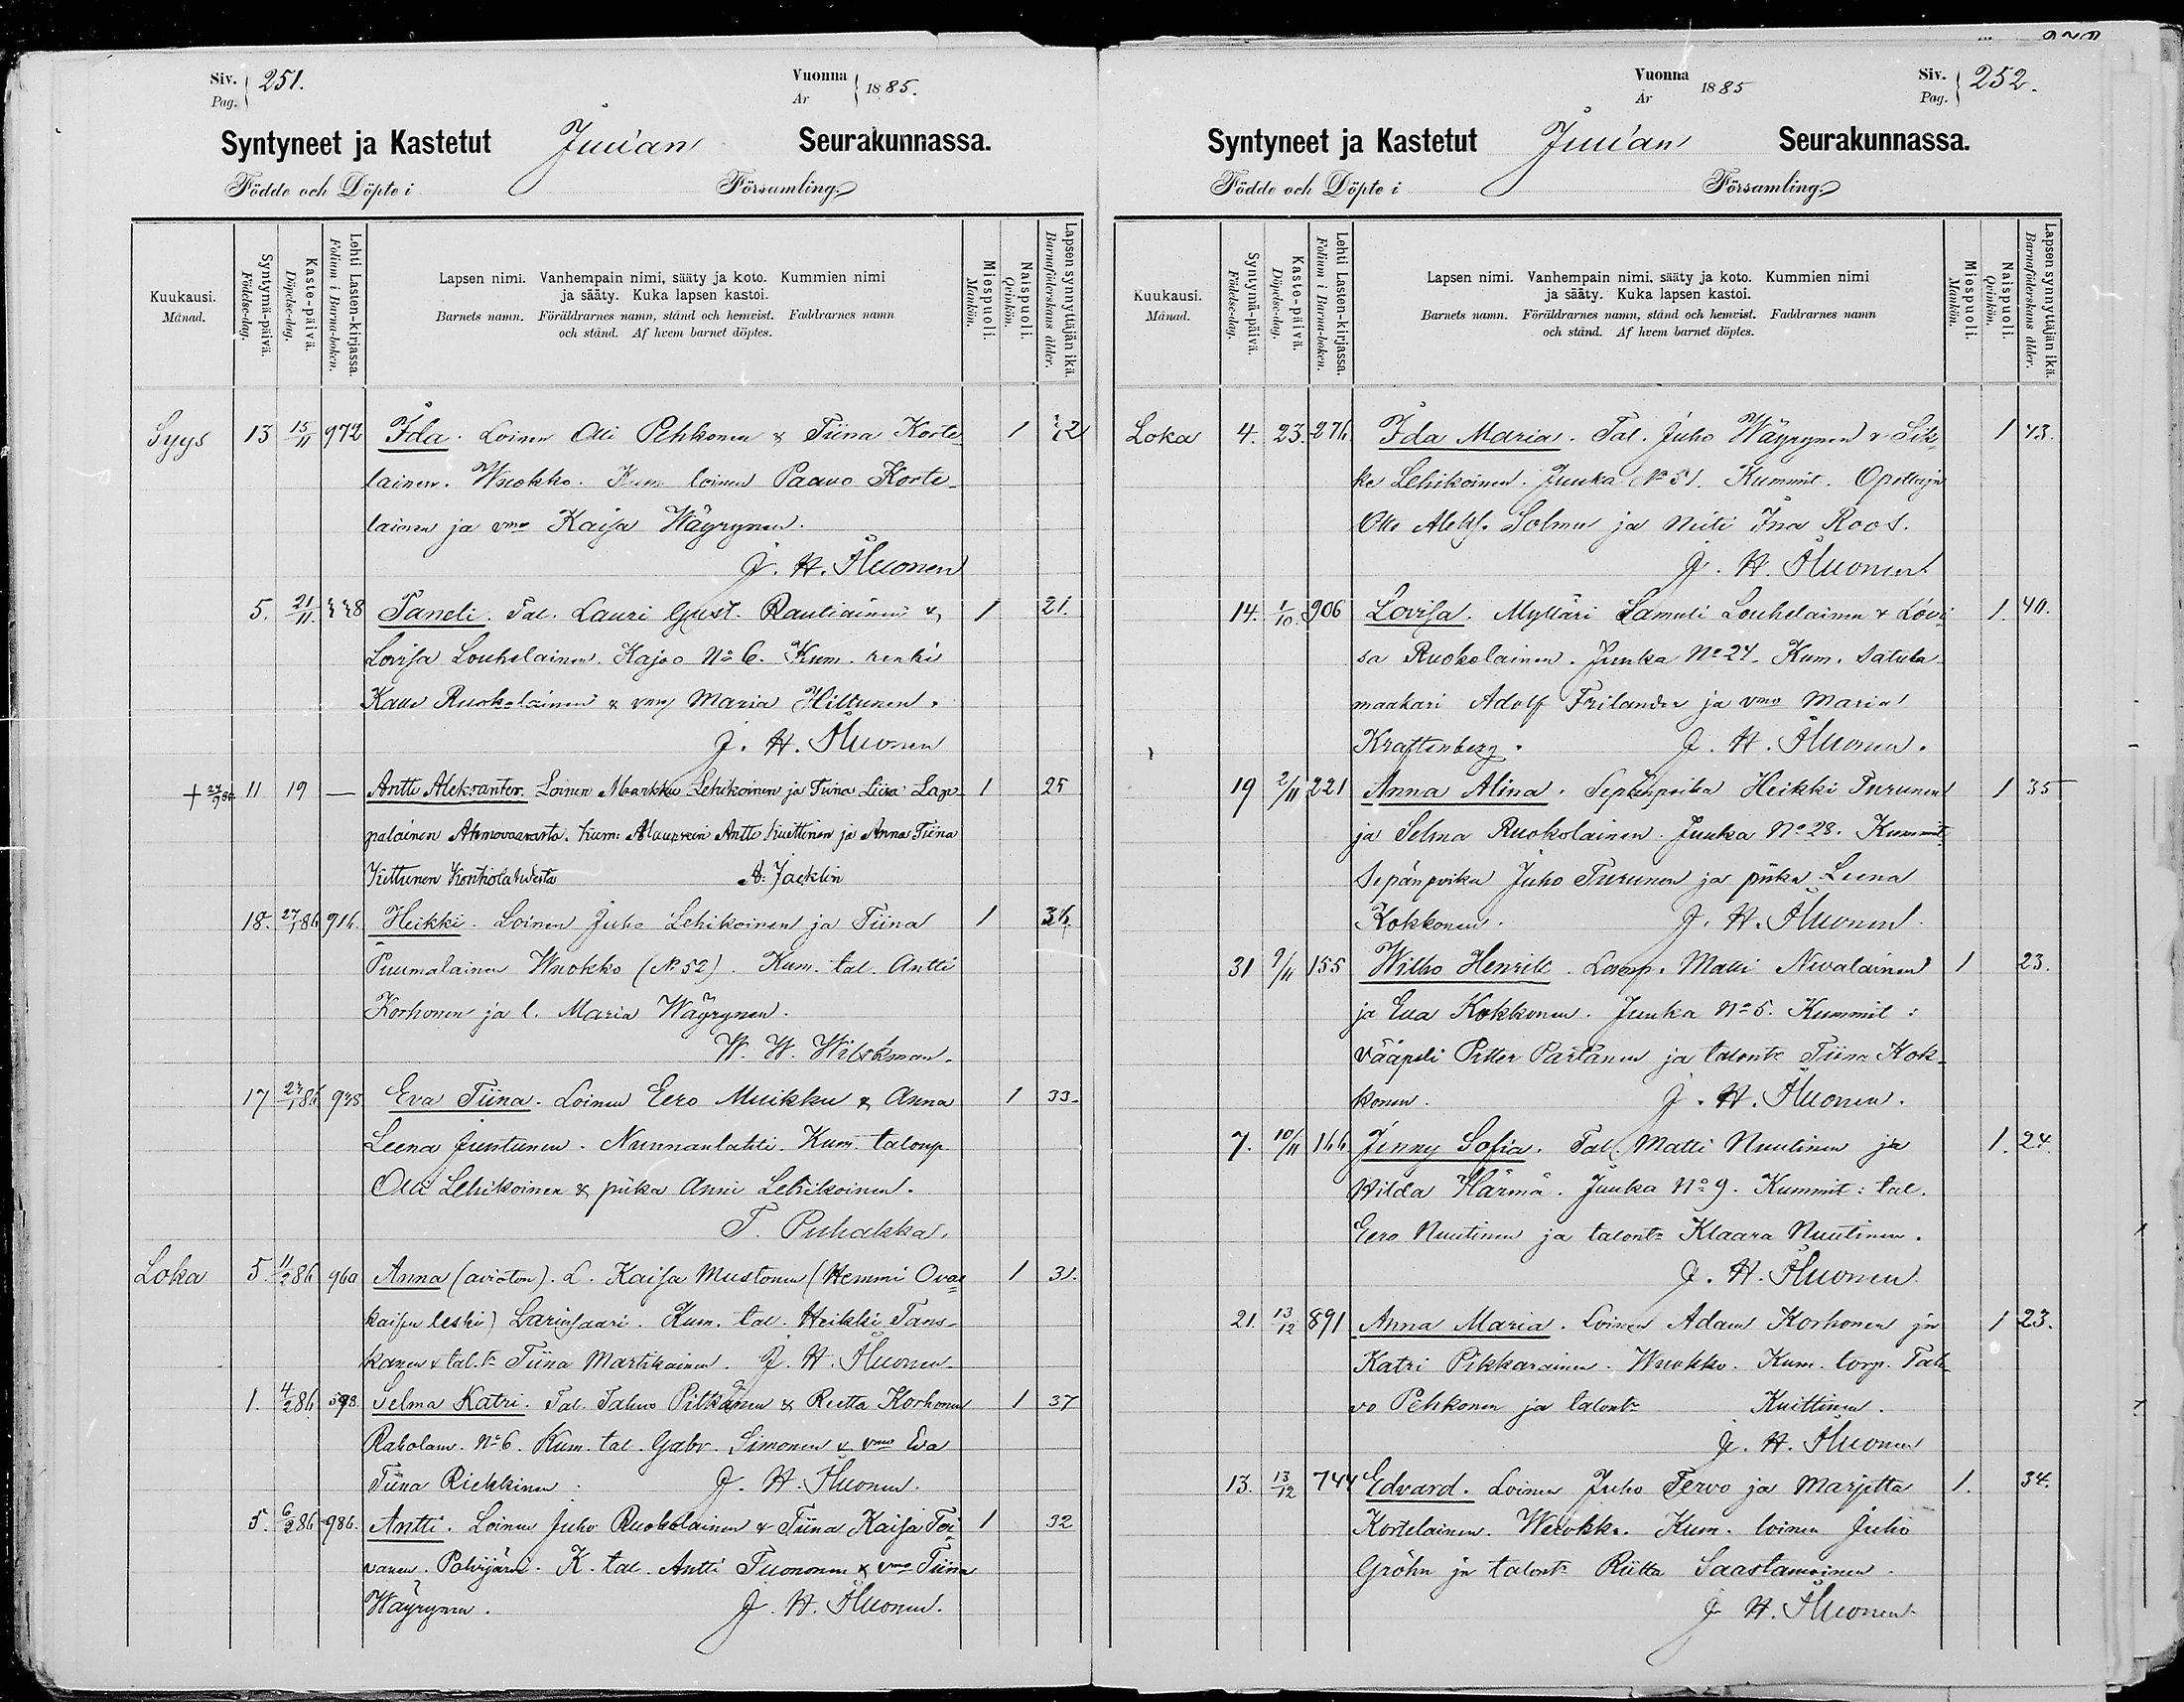 Siv. Pag. 251.
Vuonna År 1885.
Syntyneet ja Kastetut Juuan Seurakunnassa.
Födde och Döpte i Församling.
Kuukausi. Månad.
Syntymä-päivä. Födelse-dag.
Kaste-päivä. Döpelse-dag.
Lehti Lasten-kirjassa. Folium i Barna-boken.
Lapsen nimi. Vanhempain nimi, sääty ja koto. Kummien nimi
ja sääty. Kuka lapsen kastoi.
Barnets namn. Föräldrarnes namn, stånd och hemvist. Faddrarnes namn
och stånd. Af hvem barnet döptes.
Miespuoli. Mankön.
Naispuoli. Qvinkön.
Lapsen synnyttäjän ikä. Barnaföderskans ålder.
Syys 13 15/11 972 Ida. Loinen Olli Pehkonen & Tiina Korte- 1
lainen. Wuokko. Kum loinen Paavo Korte-
lainen ja vmo Kaisa Wäyrynen.
J. H. Åhuonen
5. 21/11. Taneli. Tal. Lauri Gust. Rautiainen & 1 21.
Lovisa Louhelainen. Kajoo No 6. Kum. renki
Ruokolainen & vmo Maria Hiltunen.
J. H. Åhuonen
+ 11 19 — Antti Aleksanter. Loinen Markku Lehikoinen ja Tiina Liisa Lap- 1 25
palainen Ahmovaarasta. Kum: Antti Kuittinen ja Anna Tiina
Kuttunen Konholahdesta A. Jacklin
18. 27/1 86 916. Heikki. Loinen Juho Lehikoinen ja Tiina 1
Puumalainen Wuokko (No 52). Kum. tal. Antti
Korhonen ja l. Maria Wäyrynen.
W. W. Wilskman.
17 1 86 Eva Tiina. Loinen Eero Muikku & Anna 1 33.
Leena Juntunen. Nunnanlahti. Kum. taloup.
Olli Lehikoinen & piika Anni Lehikoinen.
T. Puhakka.
Loka 5. 11/2 86 960 Anna (avioton). L. Kaisa Mustonen (Hemmi Ovas-
kaisen leski) Larinsaari. Kum. tal. Heikki Tans- 1 31.
kanen & tal.tr Tiina Martikainen. J. H. Åhuonen
1. 4/2 86. Selma Katri. Tal. Tahvo Pitkänen & Reetta Korhonen 1 37
Raholanv. No 6. Kum. tal. Gabr. Simonen & vmo Eva
Tiina Riekkinen. J. H. Åhuonen.
5. 6/2 86 986. Antti. Loinen Juho Ruokolainen & Tiina Kaisa Toi- 1 32
vanen. Polvijärvi. K. tal. Antti Tuononen & vmo Tiina
Wäyrynen. J. H. Åhuonen.
Vuonna År 1885
Siv. Pag. 252.
Syntyneet ja Kastetut Juuan Seurakunnassa.
Födde och Döpte i Församling.
Kuukausi. Månad.
Syntymä-päivä. Födelse-dag.
Kaste-päivä. Döpelse-dag.
Lehti Lasten-kirjassa. Folium i Barna-boken.
Lapsen nimi. Vanhempain nimi, sääty ja koto. Kummien nimi
ja sääty. Kuka lapsen kastoi.
Barnets namn. Föräldrarnes namn, stånd och hemvist. Faddrarnes namn
och stånd. Af hvem barnet döptes.
Miespuoli. Mankön.
Naispuoli. Qvinkön.
Lapsen synnyttäjän ikä. Barnaföderskans ålder.
Loka 4. 23. 276 Ida Maria. Tal. Juho Wäyrynen & Sik- 1 43.
ke Lehikoinen. Juuka No 51. Kummit. Opettaja
Otto Aleks. Solmu ja Neiti Ina Roos.
J. H. Åhuonen
14. 1/10. 906 Lovisa. Mylläri Samuli Louhelainen & Lovi- 1. 40.
sa Ruokolainen. Juuka No 24. Kum. Satula-
maakari Adolf Frilander ja vmo Maria
Kraftenberg. J. H. Åhuonen.
19 2/11 221 Anna Alina. Sepänpoika Heikki Turunen 1 35
ja Selma Ruokolainen. Juuka No 28. Kummit
Sepänpoika Juho Turunen ja piika Leena
Kokkonen. J. H. Åhuonen.
31 9/11 155 Wilho Henrik. Matti Nevalainen 1 23.
ja Eva Kokkonen. Juuka No 5. Kummit:
vääpeli Petter Partanen ja talontr Tiina Kok-
konen. J. H. Åhuonen.
7. 10/11 166 Jenny Sofia. Tal. Matti Nuutinen ja 1. 24.
Hilda Härmä. Juuka No 9. Kummit: tal.
Eero Nuutinen ja talontr Klaara Nuutinen.
J. H. Åhuonen.
21. 13/12 891 Anna Maria. Loinen Adam Korhonen ja 1 23.
Katri Pikkarainen. Wuokko. Kum. torp. Tah-
vo Pehkonen ja talontr Kuittinen.
J. H. Åhuonen
13. 13/12 744 Edvard. Loinen Juho Tervo ja Marjetta 1. 34.
Kortelainen. Wuokko. Kum. loinen Juho
Gröhn ja talontr Riitta Saastamoinen.
J. H. Åhuonen.